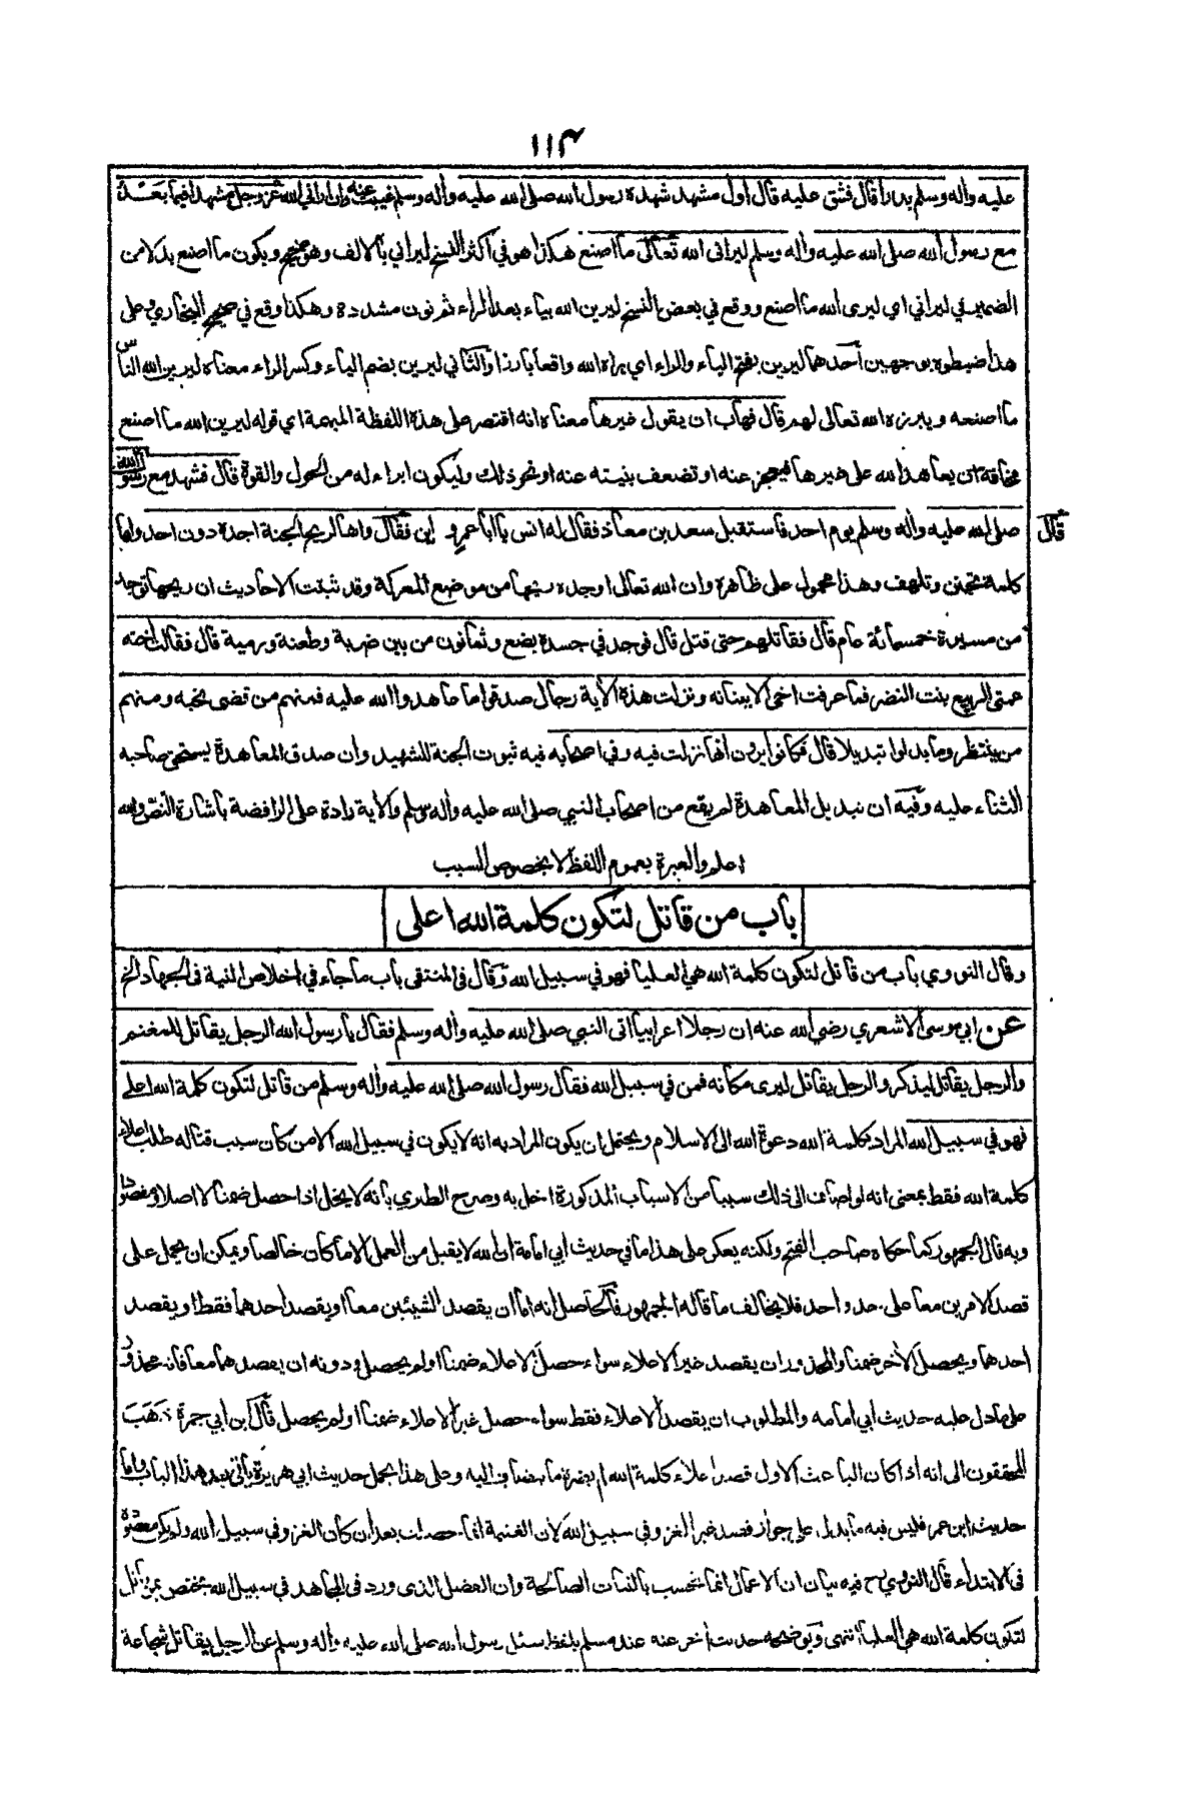 ١١٣
عليه وأله وسلم بدرا قال فشق عليه قال اول مشهد شهده رسول الله صلى الله عليه وأله وسلم غيبت عنه وان اراني الله عز وجل مشهدا فيما بعد
مع رسول الله صلى الله عليه وأله وسلم ليراني الله تعالى ما اصنع هكذا هو في اكثر النسخ ليراني بالالف وهو صحيح ويكون ما اصنع بدلا من
الضمير في ليراني اي ليرى الله ما اصنع ووقع في بعض النسخ ليرين الله بياء بعد الراء ثم نون مشددة وهكذا وقع في صحيح البخاري وعلى
هذا ضبطوه بوجهين أحدهما ليرين بفتح الياء والراء اي يراه الله واقعا بارزا والثاني ليرين بضم الياء وكسر الراء معناه ليرين الله الناس
ما اصنعه ويبرزه الله تعالى لهم قال فهاب ان يقول غيرها معناه انه اقتصر على هذه اللفظة المبهمة اي قوله ليرين الله ما اصنع
مخافة ان يعاهد الله على غيرها فيعجز عنه او تضعف بنيته عنه او نحو ذلك وليكون ابراء له من الحول والقوة قال فشهد مع رسول الله
صلى الله عليه وأله وسلم يوم احد فاستقبل سعد بن معاذ فقال له انس يا ابا عمرو اين فقال واها لريح الجنة اجده دون احد واها
قال
كلمة تحنن وتلهف وهذا محمول على ظاهره وان الله تعالى اوجده ريحها من موضع المعركة وقد ثبتت الاحاديث ان ريحها توجد
من مسيرة خمسمائة عام قال فقاتلهم حتى قتل قال فوجد في جسده بضع وثمانون من بين ضربة وطعنة ورمية قال فقالت اخته
عمتي الربيع بنت النضر فما عرفت اخي الا ببنانه ونزلت هذه الأية رجال صدقوا ما عاهدوا الله عليه فمنهم من قضى نحبه ومنهم
من ينتظر وما بدلوا تبديلا قال فكانوا يرون انها نزلت فيه وفي اصحابه فيه ثبوت الجنة للشهيد وان صدق المعاهدة يستحق صاحبه
الثناء عليه وفيه ان تبديل المعاهدة لم يقع من اصحاب النبي صلى الله عليه وأله وسلم والأية رادة على الرافضة باشارة النص والله
اعلم والعبرة بعموم اللفظ لا بخصوص السبب
باب من قاتل لتكون كلمة الله اعلى
وقال النووي باب من قاتل لتكون كلمة الله هي العليا فهو في سبيل الله وقال في المنتقى باب ما جاء في اخلاص النية في الجهاد الخ
عن ابي موسى الاشعري رضي الله عنه ان رجلا اعرابيا اتى النبي صلى الله عليه وأله وسلم فقال يا رسول الله الرجل يقاتل للمغنم
والرجل يقاتل ليذكر والرجل يقاتل ليرى مكانه فمن في سبيل الله فقال رسول الله صلى الله عليه وأله وسلم من قاتل لتكون كلمة الله اعلى
فهو في سبيل الله المراد بكلمة الله دعوة الله الى الاسلام ويحتمل ان يكون المراد به انه لا يكون في سبيل الله الا من كان سبب قتاله طلب اعلاء
كلمة الله فقط بمعنى انه لو اضاف الى ذلك سببا من الاسباب المذكورة اخل به وصرح الطبري بأنه لا يخل اذا حصل ضمنا لا اصلا ومقصودا
وبه قال الجمهور كما حكاه صاحب الفتح ولكنه يعكر على هذا ما في حديث ابي امامة ان الله لا يقبل من العمل الا ما كان خالصا ويمكن ان يحمل على
قصد الامرين معا على حد واحد فلا يخالف ما قاله الجمهور فالحاصل انه اما ان يقصد الشيئين معا او يقصد احدهما فقط او يقصد
احدهما ويحصل الأخر ضمنا والمحذور ان يقصد غير الاعلاء سواء حصل الاعلاء ضمنا او لم يحصل ودونه ان يقصدهما معا فانه محذور
على ما دل عليه حديث ابي امامه والمطلوب ان يقصد الاعلاء فقط سواء حصل غير الاعلاء ضمنا او لم يحصل قال ابن ابي جمرة ذهب
المحققون الى انه اذا كان الباعث الاول قصد اعلاء كلمة الله لم يضره ما ينضاف اليه وعلى هذا يحمل حديث ابي هريرة يأتي بعد هذا الباب واما
حديث ابن عمر فليس فيه ما يدل على جواز قصد غير الغزو في سبيل الله لان الغنيمة انما حصلت بعد ان كان الغزو في سبيل الله ولم يكن مقصودة
في الابتداء قال النووي رح فيه بيان ان الاعمال انما تحسب بالنيات الصالحة وان الفضل الذي ورد في المجاهد في سبيل الله يختص بمن قاتل
لتكون كلمة الله هي العليا انتهى ويوضحه حديث اخر عنه عند مسلم بلفظ سئل رسول الله صلى الله عليه وأله وسلم عن الرجل يقاتل شجاعة